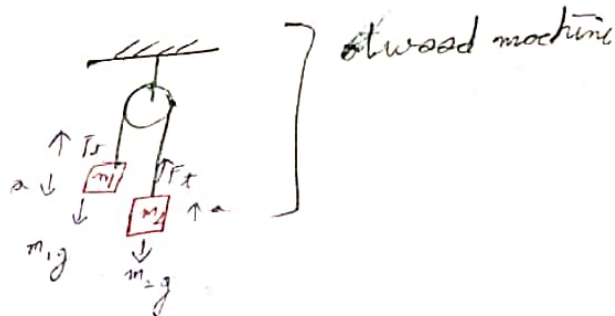 Atwood machine
Ft
a
m1
Ft
m2
a
m1g
m2g